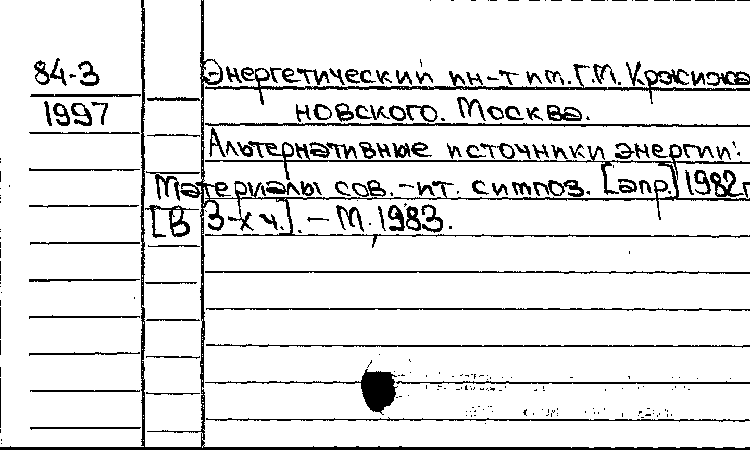 84-3 Энергетический ин-т им. Г.М. Кржижа
1997 новского. Москва.
Альтернативные источники энергии:
Материалы сов.-ит. симпоз. [апр.] 1982 г
[В 3-х ч.]. - М., 1983.